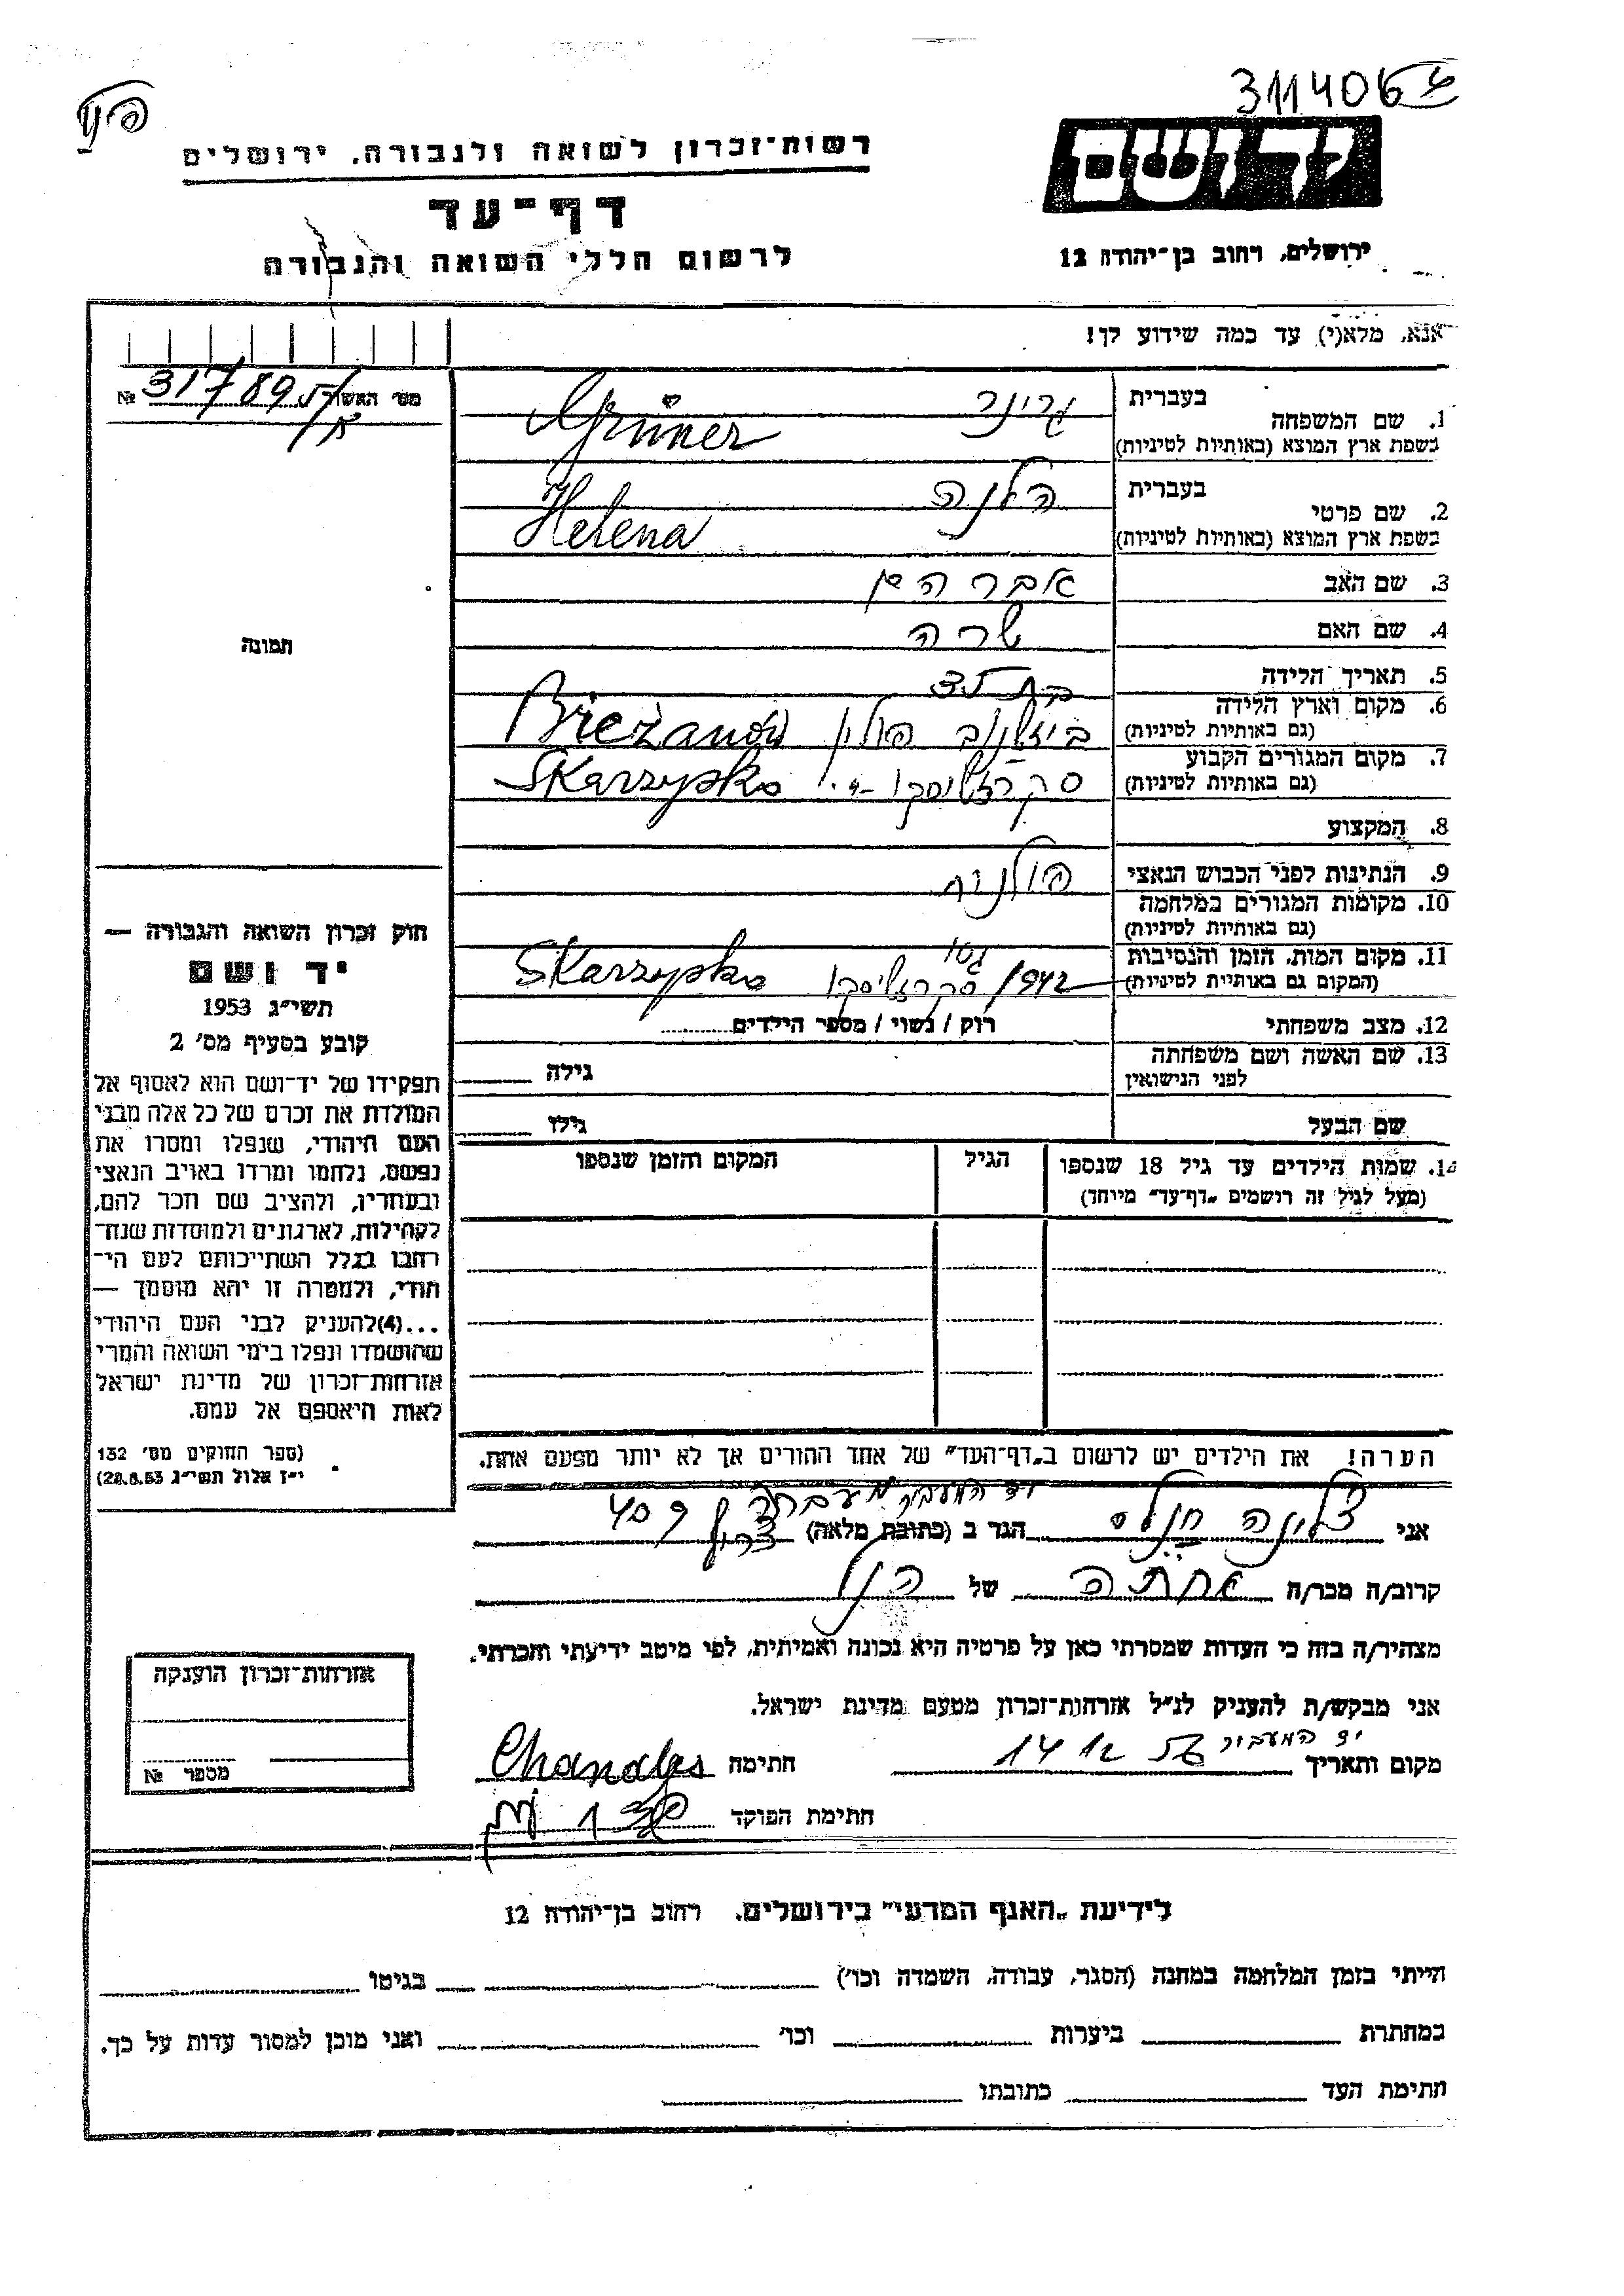 311406
יד ושם
רשות־זכרון לשואה ולגבורה, ירושלים
דף־עד
לרשום חללי השואה והגבורה
ירושלים, רחוב בן־יהודה 12
אנא, מלא(י) עד כמה שידוע לך!
מס׳ האשור № 317895
1. שם המשפחה
בעברית גרינר
בשפת ארץ המוצא (באותיות לטיניות) Grüner
2. שם פרטי
בעברית הלנה
בשפת ארץ המוצא (באותיות לטיניות) Helena
3. שם האב אברהם
4. שם האם שרה
תמונה
5. תאריך הלידה בת
6. מקום וארץ הלידה
(גם באותיות לטיניות) פולין Bieżanów
7. מקום המגורים הקבוע
(גם באותיות לטיניות) Skarzysko
8. המקצוע
9. הנתינות לפני הכבוש הנאצי פולנית
10. מקומות המגורים במלחמה
(גם באותיות לטיניות)
11. מקום המות, הזמן והנסיבות
(המקום גם באותיות לטיניות) 1942 גטו Skarzysko
12. מצב משפחתי רווק / נשוי / מספר הילדים
13. שם האשה ושם משפחתה
לפני הנישואין גילה
שם הבעל גילו
14. שמות הילדים עד גיל 18 שנספו הגיל המקום והזמן שנספו
(מעל לגיל זה רושמים „דף־עד״ מיוחד)
חוק זכרון השואה והגבורה —
יד ושם
תשי״ג 1953
קובע בסעיף מס׳ 2
תפקידו של יד־ושם הוא לאסוף אל
המולדת את זכרם של כל אלה מבני
העם היהודי, שנפלו ומסרו את
נפשם, נלחמו ומרדו באויב הנאצי
ובעוזריו, ולהציב שם וזכר להם,
לקהילות, לארגונים ולמוסדות שנח־
רבו בגלל השתייכותם לעם הי־
הודי, ולמטרה זו יהא מוסמך —
...(4) להעניק לבני העם היהודי
שהושמדו ונפלו בימי השואה והמרי
אזרחות־זכרון של מדינת ישראל
לאות היאספם אל עמם.
(ספר החוקים מס׳ 132
י״ז אלול תשי״ג 28.8.53)
הערה! את הילדים יש לרשום ב„דף־העד״ של אחד ההורים אך לא יותר מפעם אחת.
יד המעביר מעברה
אני הגר ב (כתובת מלאה) 409
קרוב/ה מכר/ה אחתה של הנ״ל
מצהיר/ה בזה כי העדות שמסרתי כאן על פרטיה היא נכונה ואמיתית, לפי מיטב ידיעתי והכרתי.
אני מבקש/ת להעניק לנ״ל אזרחות־זכרון מטעם מדינת ישראל.
אזרחות־זכרון הוענקה
מספר №
יד המעביר
מקום ותאריך 14 12 חתימה
חתימת הפוקד
לידיעת „האגף המדעי״ בירושלים, רחוב בן־יהודה 12
הייתי בזמן המלחמה במחנה (הסגר, עבודה, השמדה וכו׳) בגיטו
במחתרת ביערות וכו׳ ואני מוכן למסור עדות על כך.
חתימת העד כתובתו